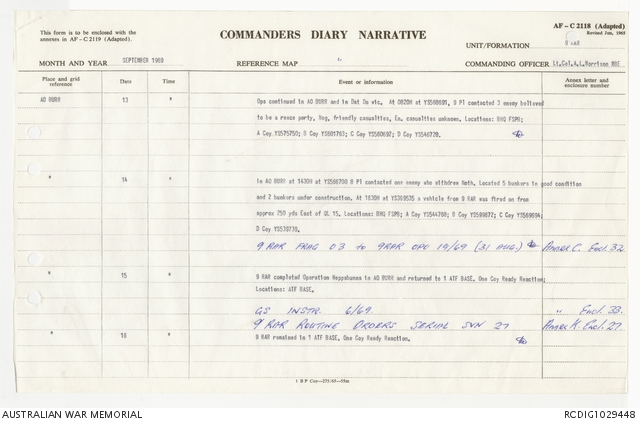 This form is to be enclosed with the
annexes in AF – C 2119 (Adapted).
COMMANDERS DIARY NARRATIVE
AF – C 2118 (Adapted)
Revised Jan, 1965
UNIT/FORMATION 9 RAR
MONTH AND YEAR SEPTEMBER 1969
REFERENCE MAP
COMMANDING OFFICER Lt.Col.A.L.Morrison MBE
Place and grid reference
Date
Time
Event or information
Annex letter and enclosure number
AO BURR 13 " Ops continued in AO BURR and in Dat Do vic. At 0820H at YS588691, 8 Pl contacted 3 enemy believed
to be a recce party, Neg, friendly casualties, En. casualties unknown. Locations: BHQ FSPB;
A Coy YS575750; B Coy YS601763; C Coy YS580692; D Coy YS546728.
" 14 " In AO BURR at 1430H at YS586700 8 Pl contacted one enemy who withdrew North. Located 5 bunkers in good condition
and 2 bunkers under construction. At 1830H at YS399535 a vehicle from 9 RAR was fired on from
approx 250 yds East of QL 15. Locations: BHQ FSPB; A Coy YS544760; B Coy YS599672; C Coy YS569694;
D Coy YS539739.
9 RAR FRAG 03 to 9RAR OPO 19/69 (31 AUG) Annex C. Encl. 32
" 15 " 9 RAR completed Operation Neppabunna in AO BURR and returned to 1 ATF BASE. One Coy Ready Reaction;
Locations: ATF BASE.
GS INSTR. 6/69. " Encl. 33.
9 RAR ROUTINE ORDERS SERIAL SVN 27 Annex K. Encl. 27.
" 16 " 9 RAR remained in 1 ATF BASE. One Coy Ready Reaction.
AUSTRALIAN WAR MEMORIAL
RCDIG1029448